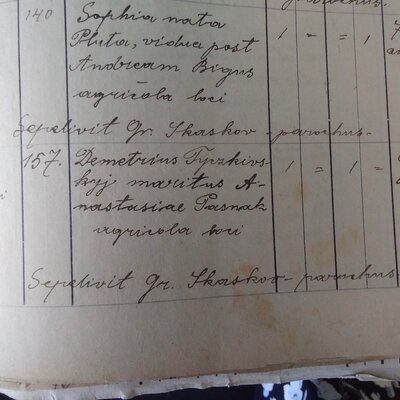 parochus.
140 Sophia nata
Pluta, vidua post / = = /
Andream Bigus
agricola loci
Sepelivit Gr. Skaskov - parochus -
157. Demetrius Tyzkivs- / = / =
kyj maritus A-
nastasiae Pasnak
agricola loci
Sepelivit Gr. Skaskov - parochus